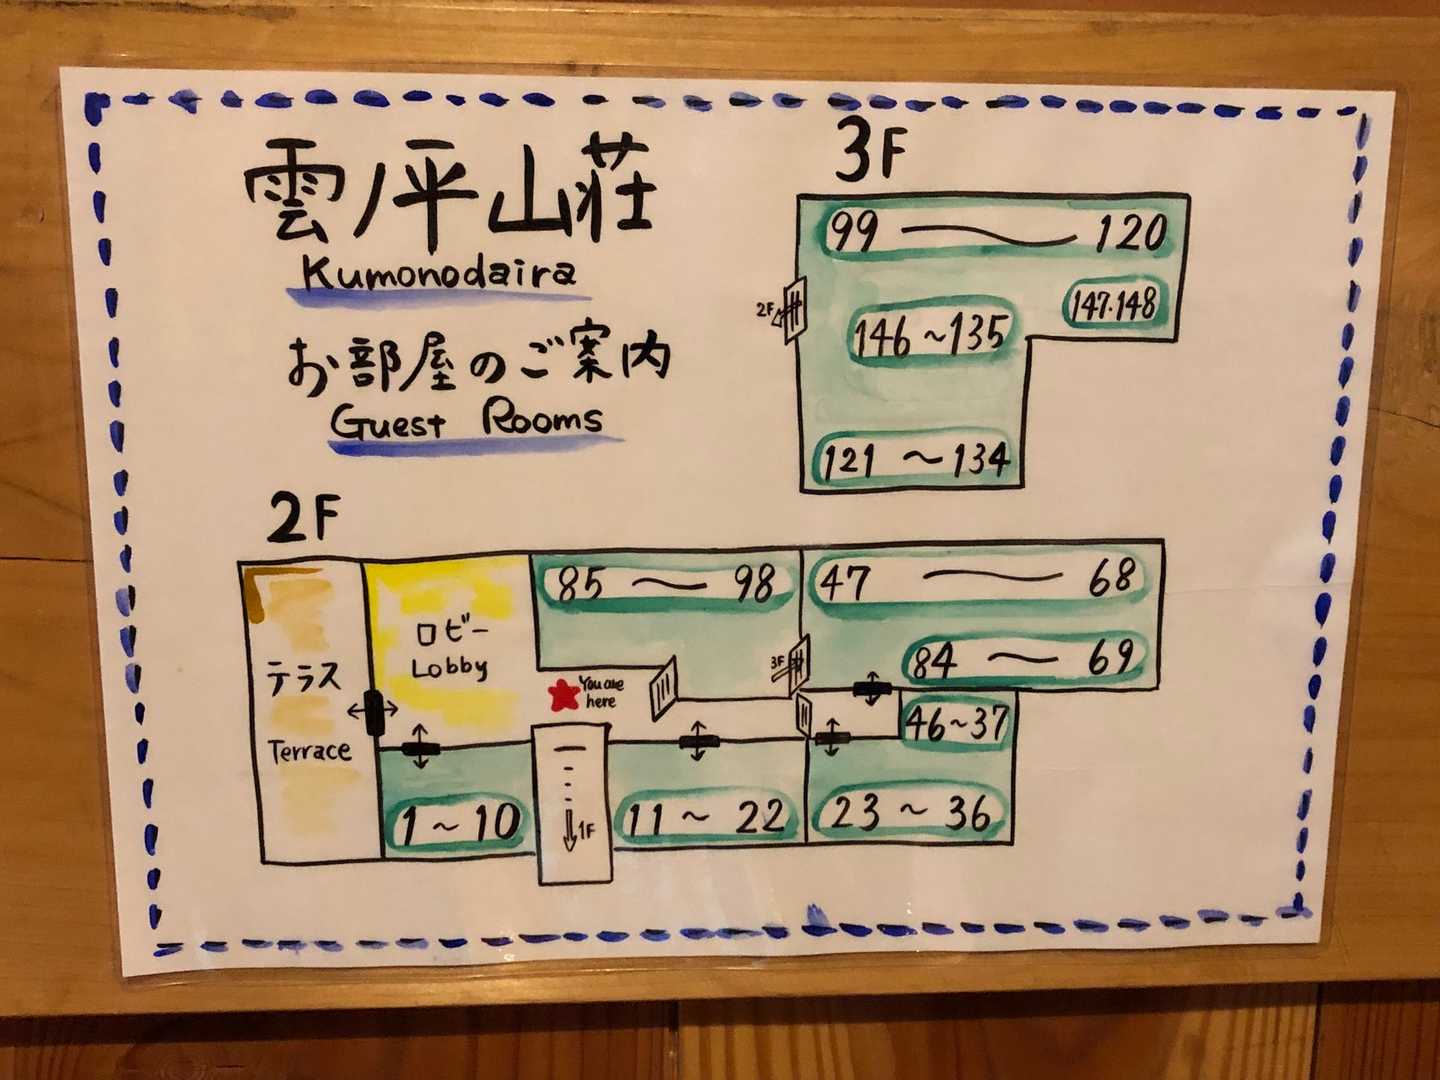 雲ノ平山荘
Kumonodaira
お部屋のご案内
Guest Rooms
3F
99 〜 120
147.148
2F
146 〜 135
121 〜 134
2F
85 〜 98
47 〜 68
ロビー
Lobby
84 〜 69
3F
テラス
You are
here
46〜37
Terrace
1 〜 10
1F
11 〜 22
23 〜 36